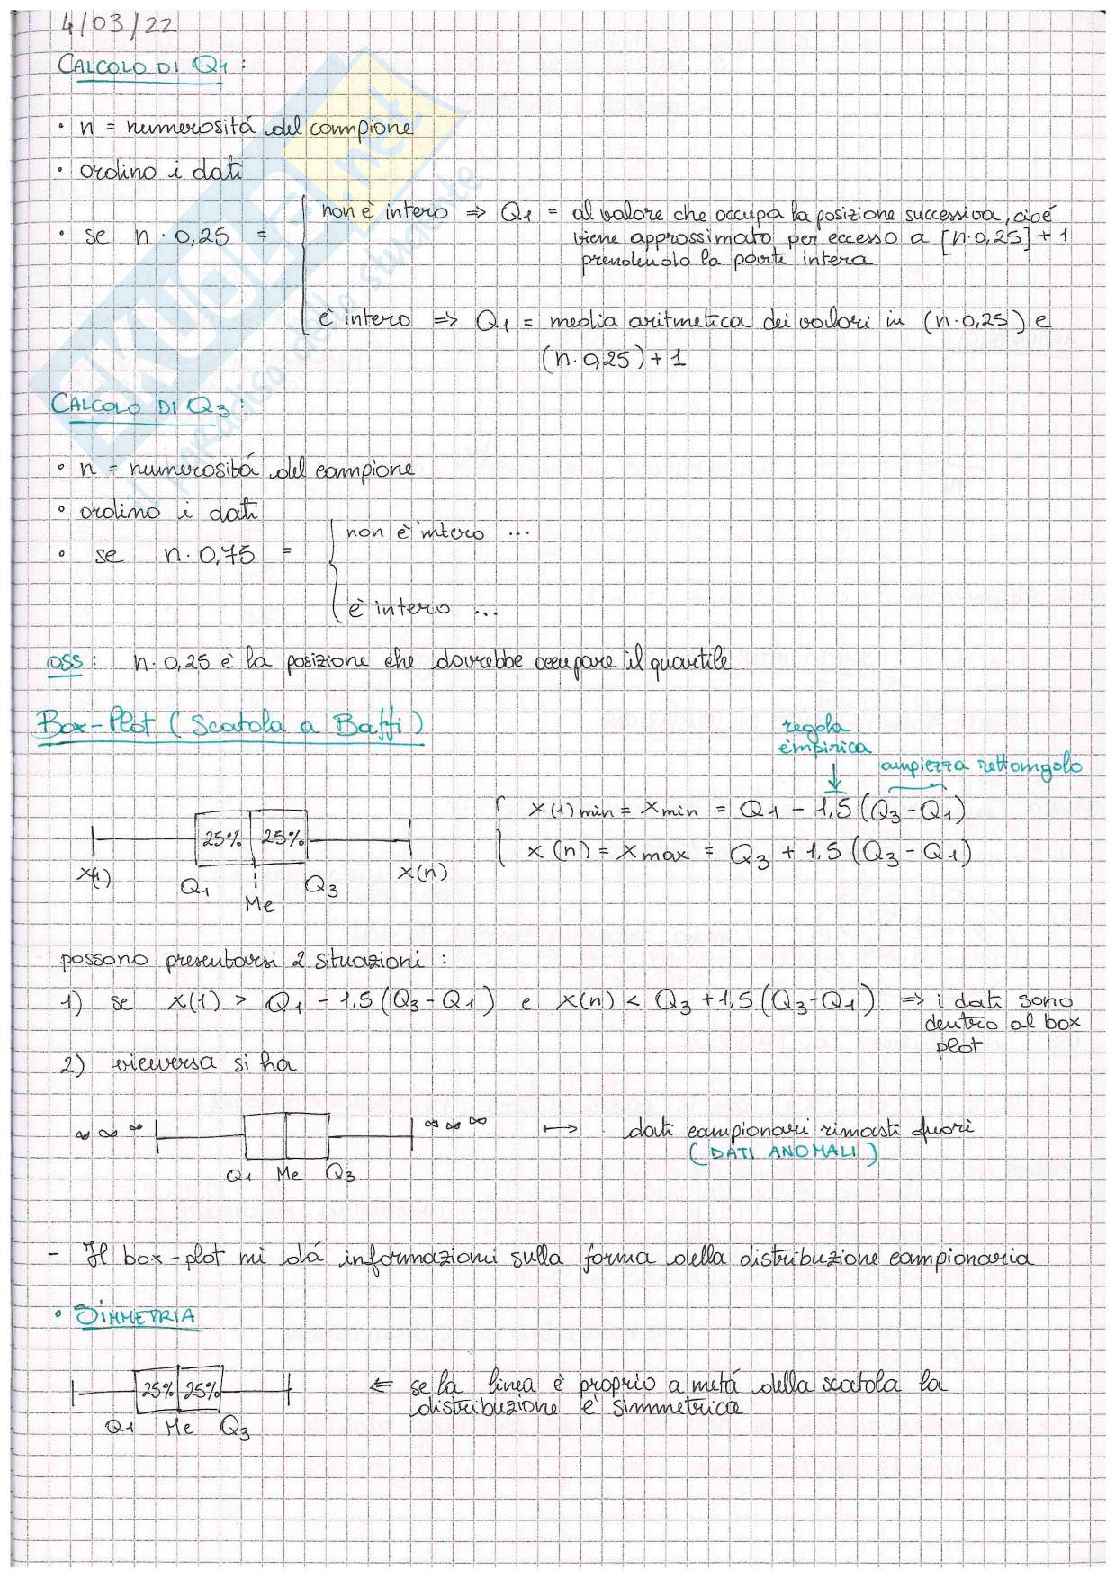 4/03/22
CALCOLO DI Q1 :
• n = numerositá del campione
• ordino i dati
• se n · 0,25 =
non è intero => Q1 = al valore che occupa la posizione successiva, cioé
viene approssimato per eccesso a [n·0,25] + 1
prendendo la parte intera
è intero => Q1 = media aritmetica dei valori in (n·0,25) e
(n·0,25) + 1
CALCOLO DI Q3 :
• n = numerositá del campione
• ordino i dati
• se n · 0,75 =
non è intero ...
è intero ...
OSS : n · 0,25 è la posizione che dovrebbe occupare il quartile
Box-Plot ( Scatola a Baffi )
regola
empirica
ampiezza rettangolo
x(1)min = xmin = Q1 - 1,5 (Q3-Q1)
x(n) = xmax = Q3 + 1,5 (Q3-Q1)
25% 25%
x(1) Q1 Me Q3 x(n)
possono presentarsi 2 situazioni :
1) se x(1) > Q1 - 1,5 (Q3-Q1) e x(n) < Q3 + 1,5 (Q3-Q1) => i dati sono
dentro al box
plot
2) viceversa si ha
∞ ∞ ∞ ∞ ∞ ∞ ↦ dati campionari rimasti fuori
( DATI ANOMALI )
Q1 Me Q3
- Il box-plot mi dá informazioni sulla forma della distribuzione campionaria
• SIMMETRIA
25% 25%
Q1 Me Q3
← se la linea è proprio a metá della scatola la
distribuzione è simmetrica
SKUOLA.net
il paradiso dello studente